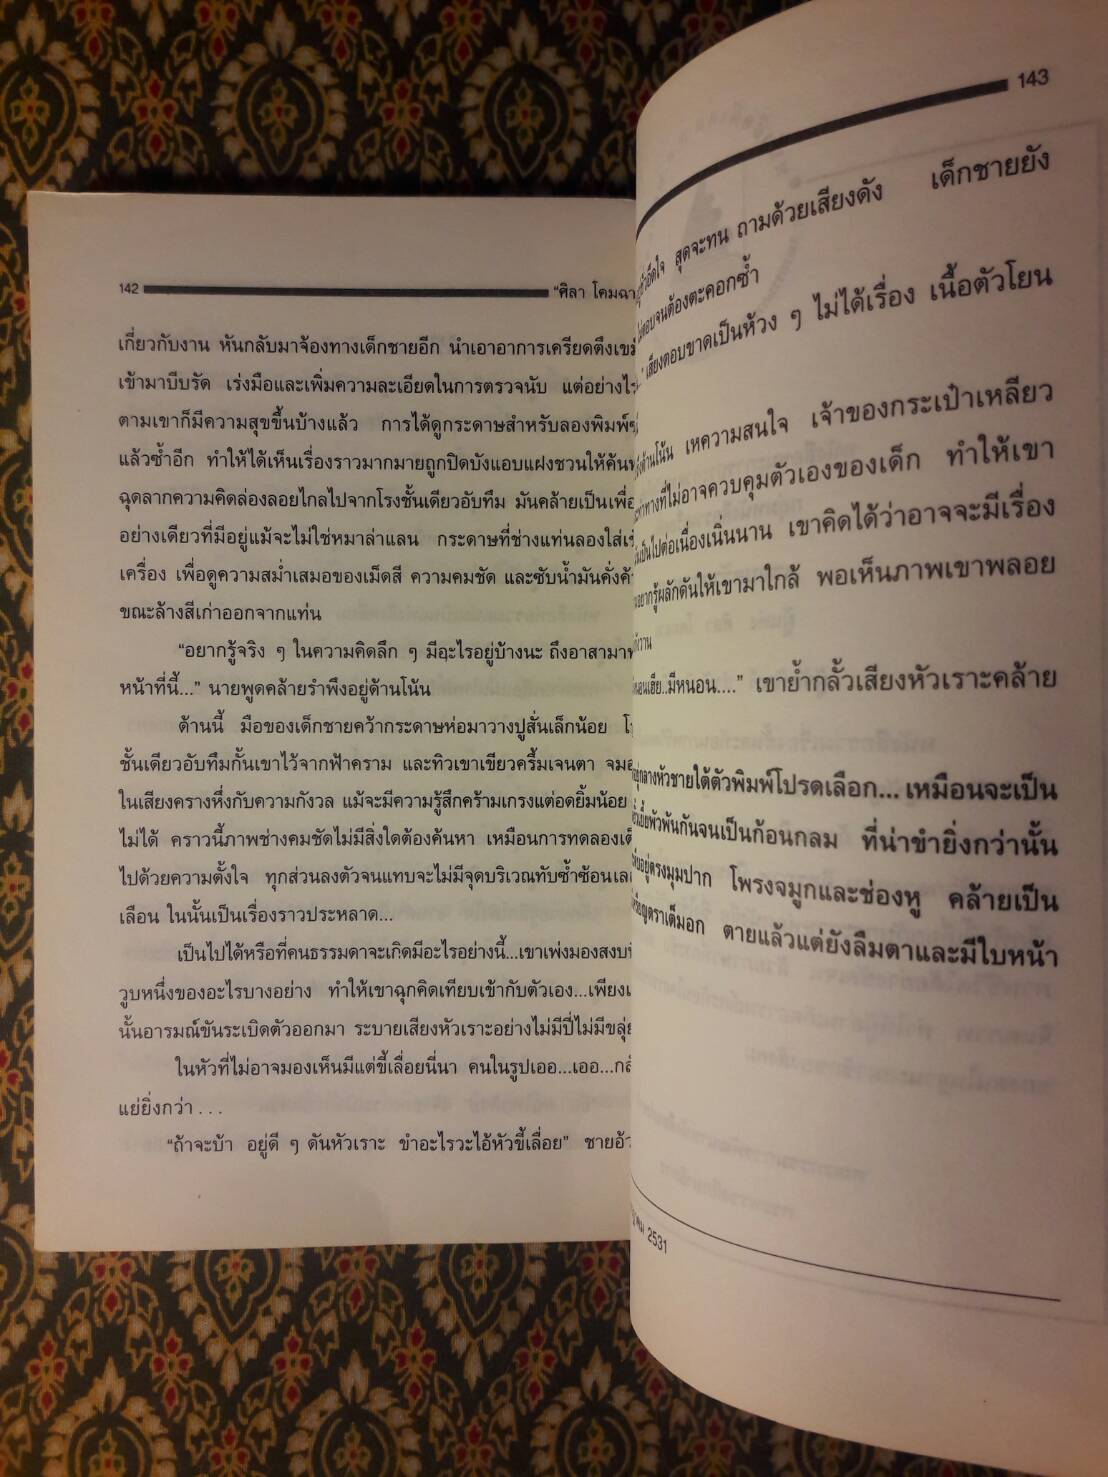 142
"ศิลา โคมฉาย
เกี่ยวกับงาน หันกลับมาจ้องทางเด็กชายอีก นำเอาอาการเครียดตึงเขม็
เข้ามาบีบรัด เร่งมือและเพิ่มความละเอียดในการตรวจนับ แต่อย่างไร
ตามเขาก็มีความสุขขึ้นบ้างแล้ว การได้ดูกระดาษสำหรับลองพิมพ์
แล้วซ้ำอีก ทำให้ได้เห็นเรื่องราวมากมายถูกปิดบังแอบแฝงชวนให้ค้นห
ฉุดลากความคิดล่องลอยไกลไปจากโรงชั้นเดียวอับทึม มันคล้ายเป็นเพื่อ
อย่างเดียวที่มีอยู่แม้จะไม่ใช่หมาล่าแลน กระดาษที่ช่างแท่นลองใส่เข้
เครื่อง เพื่อดูความสม่ำเสมอของเม็ดสี ความคมชัด และซับน้ำมันคั่งค้
ขณะล้างสีเก่าออกจากแท่น
"อยากรู้จริง ๆ ในความคิดลึก ๆ มีอะไรอยู่บ้างนะ ถึงอาสามาท
หน้าที่นี้..." นายพูดคล้ายรำพึงอยู่ด้านโน้น
ด้านนี้ มือของเด็กชายคว้ากระดาษห่อมาวางปูสั่นเล็กน้อย โร
ชั้นเดียวอับทึมกั้นเขาไว้จากฟ้าคราม และทิวเขาเขียวครึ้มเจนตา จมอ
ในเสียงครางหึ่งกับความกังวล แม้จะมีความรู้สึกคร้ามเกรงแต่อดยิ้มน้อย
ไม่ได้ คราวนี้ภาพช่างคมชัดไม่มีสิ่งใดต้องค้นหา เหมือนการทดลองเต็
ไปด้วยความตั้งใจ ทุกส่วนลงตัวจนแทบจะไม่มีจุดบริเวณทับซ้ำซ้อนเลอ
เลือน ในนั้นเป็นเรื่องราวประหลาด...
เป็นไปได้หรือที่คนธรรมดาจะเกิดมีอะไรอย่างนี้...เขาเพ่งมองสงบ
วูบหนึ่งของอะไรบางอย่าง ทำให้เขาฉุกคิดเทียบเข้ากับตัวเอง...เพียง
นั้นอารมณ์ขันระเบิดตัวออกมา ระบายเสียงหัวเราะอย่างไม่มีปี่ไม่มีขลุ่ย
ในหัวที่ไม่อาจมองเห็นมีแต่ขี้เลื่อยนี่นา คนในรูปเออ...เออ...กลั
แย่ยิ่งกว่า...
"ถ้าจะบ้า อยู่ดี ๆ ดันหัวเราะ ขำอะไรวะไอ้หัวขี้เลื่อย" ชายอ้ว
143
อึดใจ สุดจะทน ถามด้วยเสียงดัง เด็กชายยัง
ตอบจนต้องตะคอกซ้ำ
เสียงตอบขาดเป็นห้วง ๆ ไม่ได้เรื่อง เนื้อตัวโยน
ด้านโน้น เหความสนใจ เจ้าของกระเป๋าเหลียว
ท่าทางที่ไม่อาจควบคุมตัวเองของเด็ก ทำให้เขา
เป็นไปต่อเนื่องเนิ่นนาน เขาคิดได้ว่าอาจจะมีเรื่อง
อยากรู้ผลักดันให้เขามาใกล้ พอเห็นภาพเขาพลอย
หนอนเฮีย..มีหนอน...." เขาย้ำกลั้วเสียงหัวเราะคล้าย
กลางหัวชายใต้ตัวพิมพ์โปรดเลือก... เหมือนจะเป็น
พัวพันกันจนเป็นก้อนกลม ที่น่าขำยิ่งกว่านั้น
อยู่ตรงมุมปาก โพรงจมูกและช่องหู คล้ายเป็น
ตราเด็มอก ตายแล้วแต่ยังลืมตาและมีใบหน้า
2531